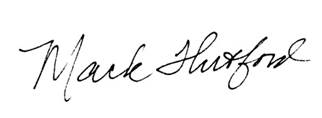 Mark Hutford